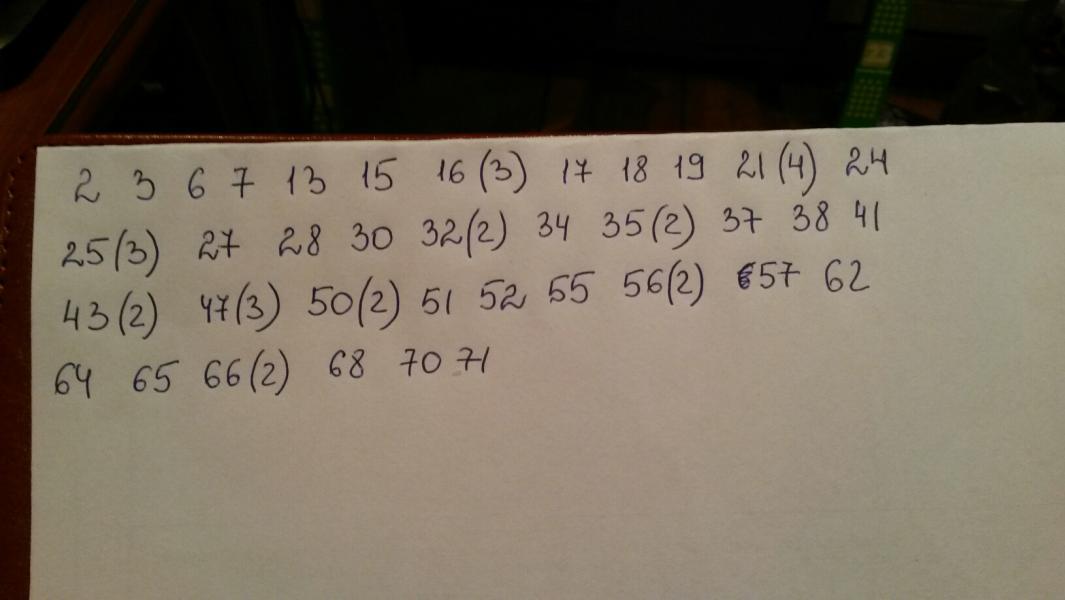 2 3 6 7 13 15 16(3) 17 18 19 21(4) 24
25(3) 27 28 30 32(2) 34 35(2) 37 38 41
43(2) 47(3) 50(2) 51 52 55 56(2) 57 62
64 65 66(2) 68 70 71